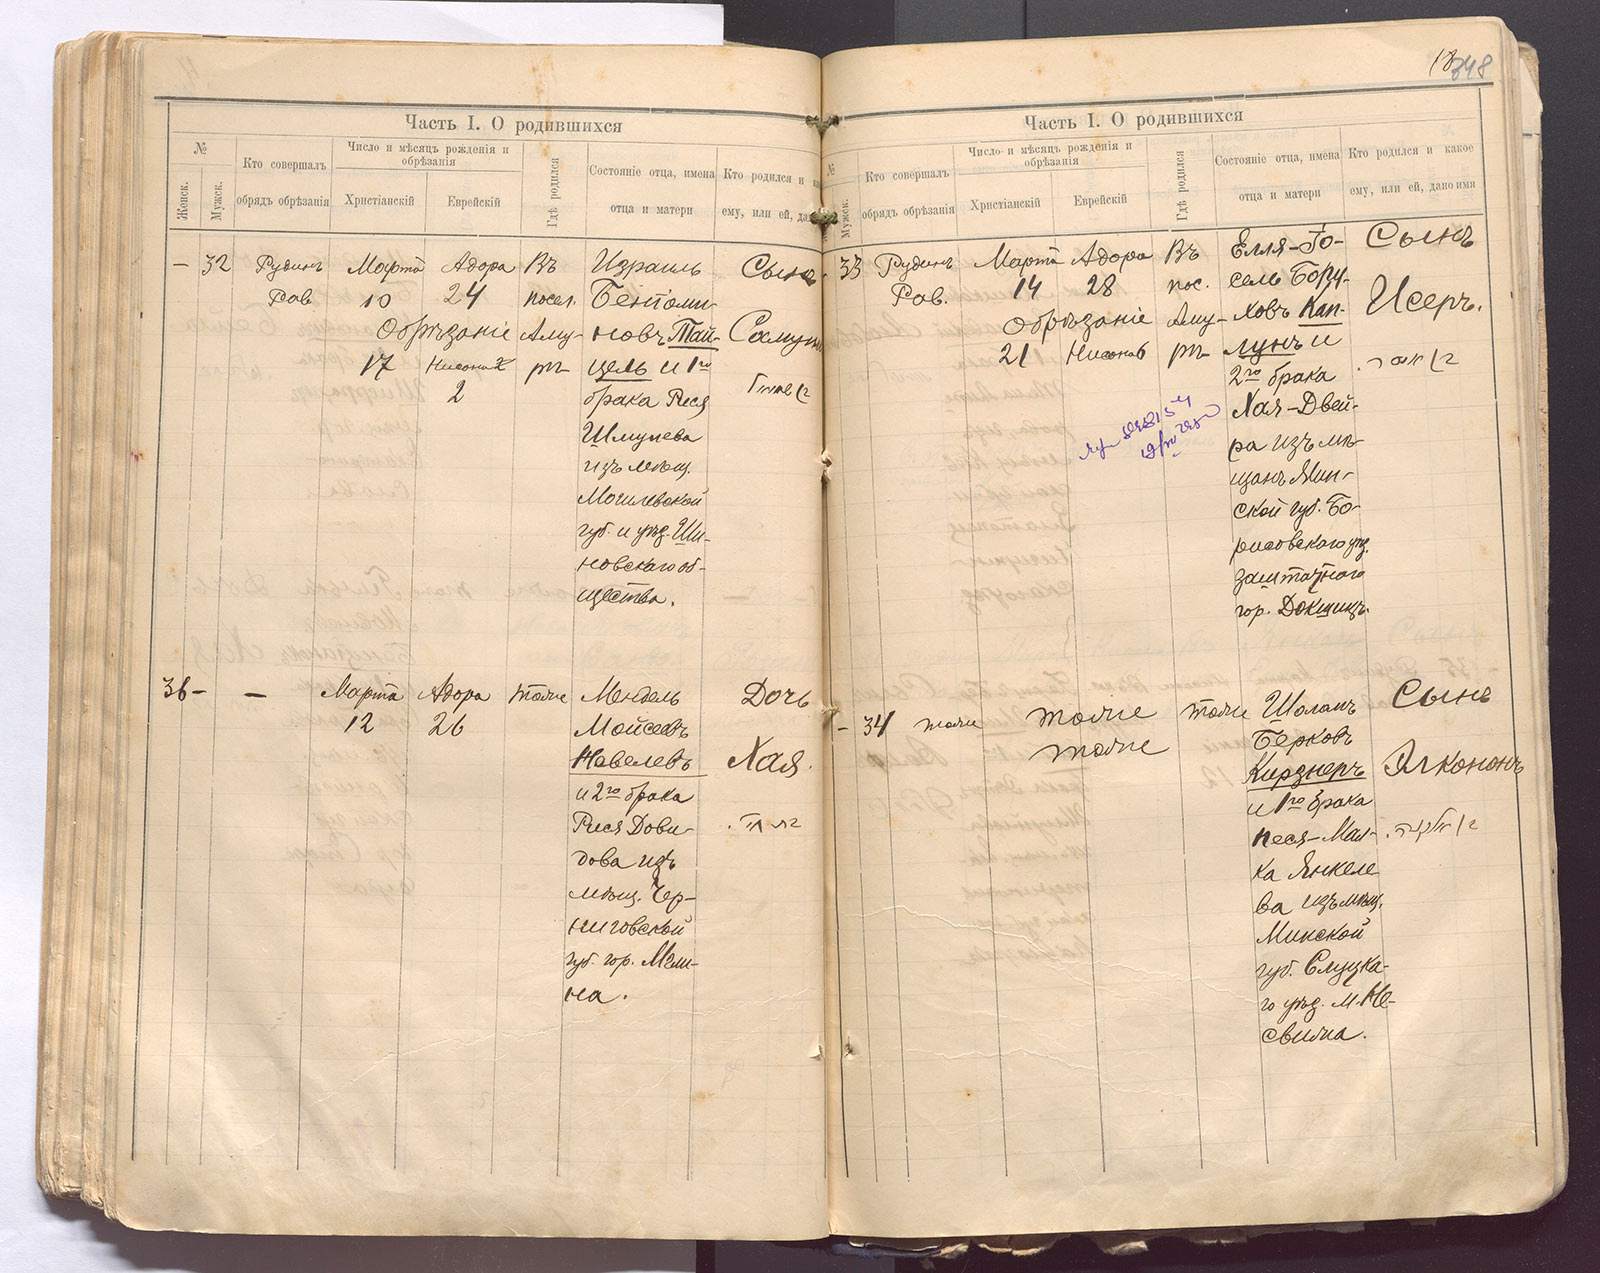 18
348
Часть I. О родившихся
№
Женск.
Мужск.
Кто совершалъ
обрядъ обрѣзанія
Число и мѣсяцъ рожденія и
обрѣзанія
Христіанскій
Еврейскій
Гдѣ родился
Состояніе отца, имена
отца и матери
Кто родился и
ему, или ей, да
— 32
Рудинъ
Рав.
Марта
10
Адора
24
Обрѣзаніе
17
Нисона
2
Въ
посел.
Аму-
рѣ
Израиль
Беніоми-
новъ Тай-
цель и 1го
брака Рися
Шмуева
изъ мѣщ.
Могилевской
губ. и уѣзд. Ши-
новскаго об-
щества.
Сынъ
36 — —
Марта
12
Адора
26
тоже
Мендель
Мойсеевъ
Невелевъ
и 2го брака
Рися Дови-
дова изъ
мѣщ. Чер-
ниговской
губ. гор. Мгли-
на.
Дочь
Хая.
Часть I. О родившихся
№
Мужск.
Кто совершалъ
обрядъ обрѣзанія
Число и мѣсяцъ рожденія и
обрѣзанія
Христіанскій
Еврейскій
Гдѣ родился
Состояніе отца, имена
отца и матери
Кто родился и какое
ему, или ей, дано имя
33
Рудинъ
Рав.
Марта
14
Адора
28
Обрѣзаніе
21
Нисона 6
Въ
пос.
Аму-
рѣ
Елля-Го-
сель Бору-
ховъ Кап-
лунъ и
2го брака
Хая-Двей-
ра изъ мѣ-
щанъ Мин-
ской губ. Бо-
рисовскаго уѣзд.
заштатнаго
гор. Докшицъ.
Сынъ
Исеръ.
— 34
тоже
тоже
тоже
тоже
Шоломъ
Берковъ
Кирзнеръ
и 1го брака
Песя-Мал-
ка Янкеле-
ва изъ мѣщ.
Минской
губ. Слуцка-
го уѣзд. м. Не-
свижа.
Сынъ
Элкононъ